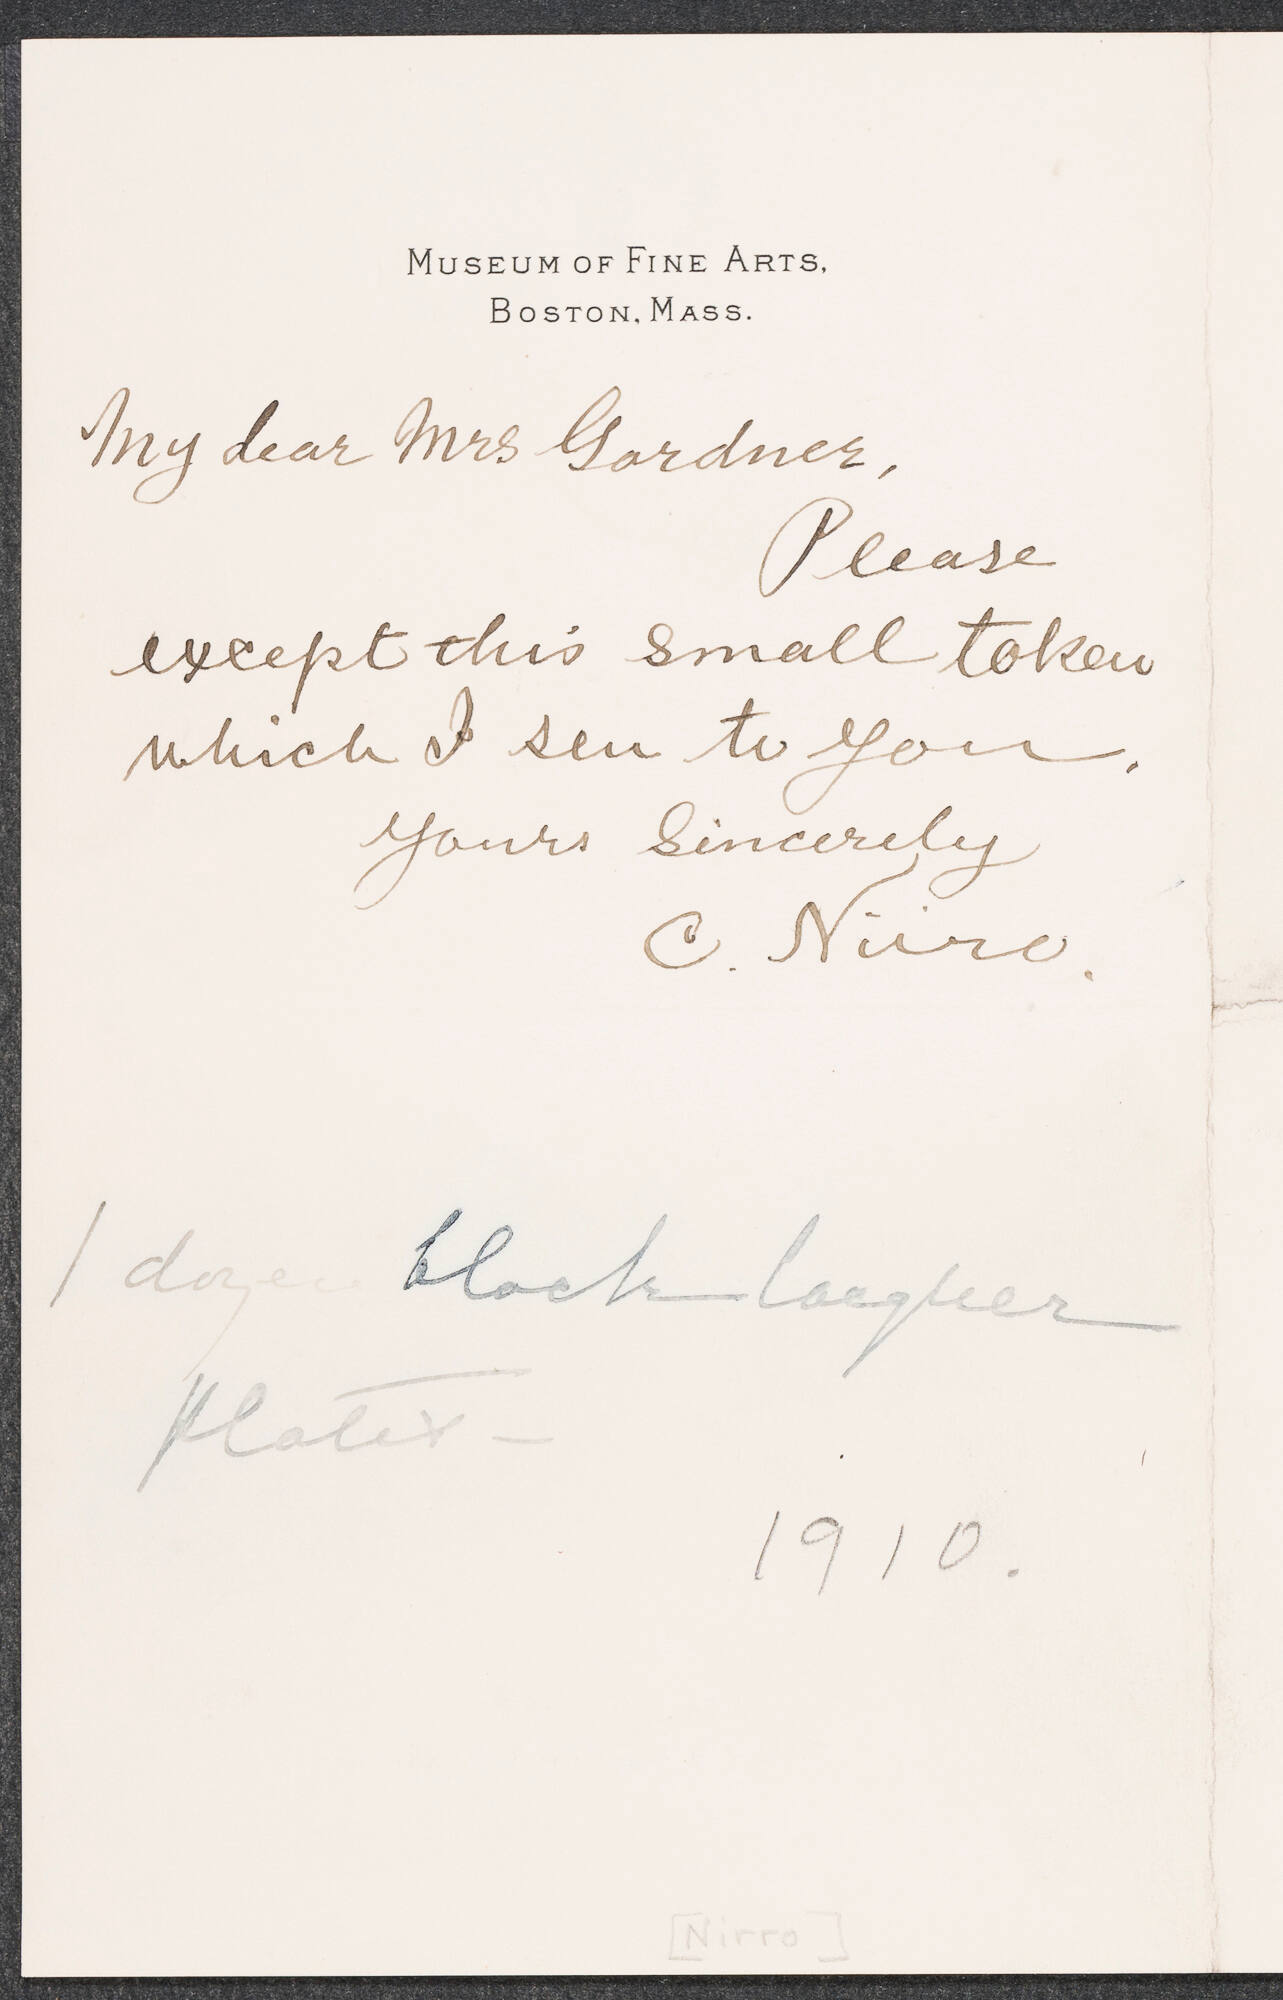 MUSEUM OF FINE ARTS,
BOSTON, MASS.
My dear Mrs Gardner,
Please
except this small token
which I sen to you.
Yours Sincerely
C. Niiro.
1 dozen black lacquer
plates –
1910.
[Nirro]